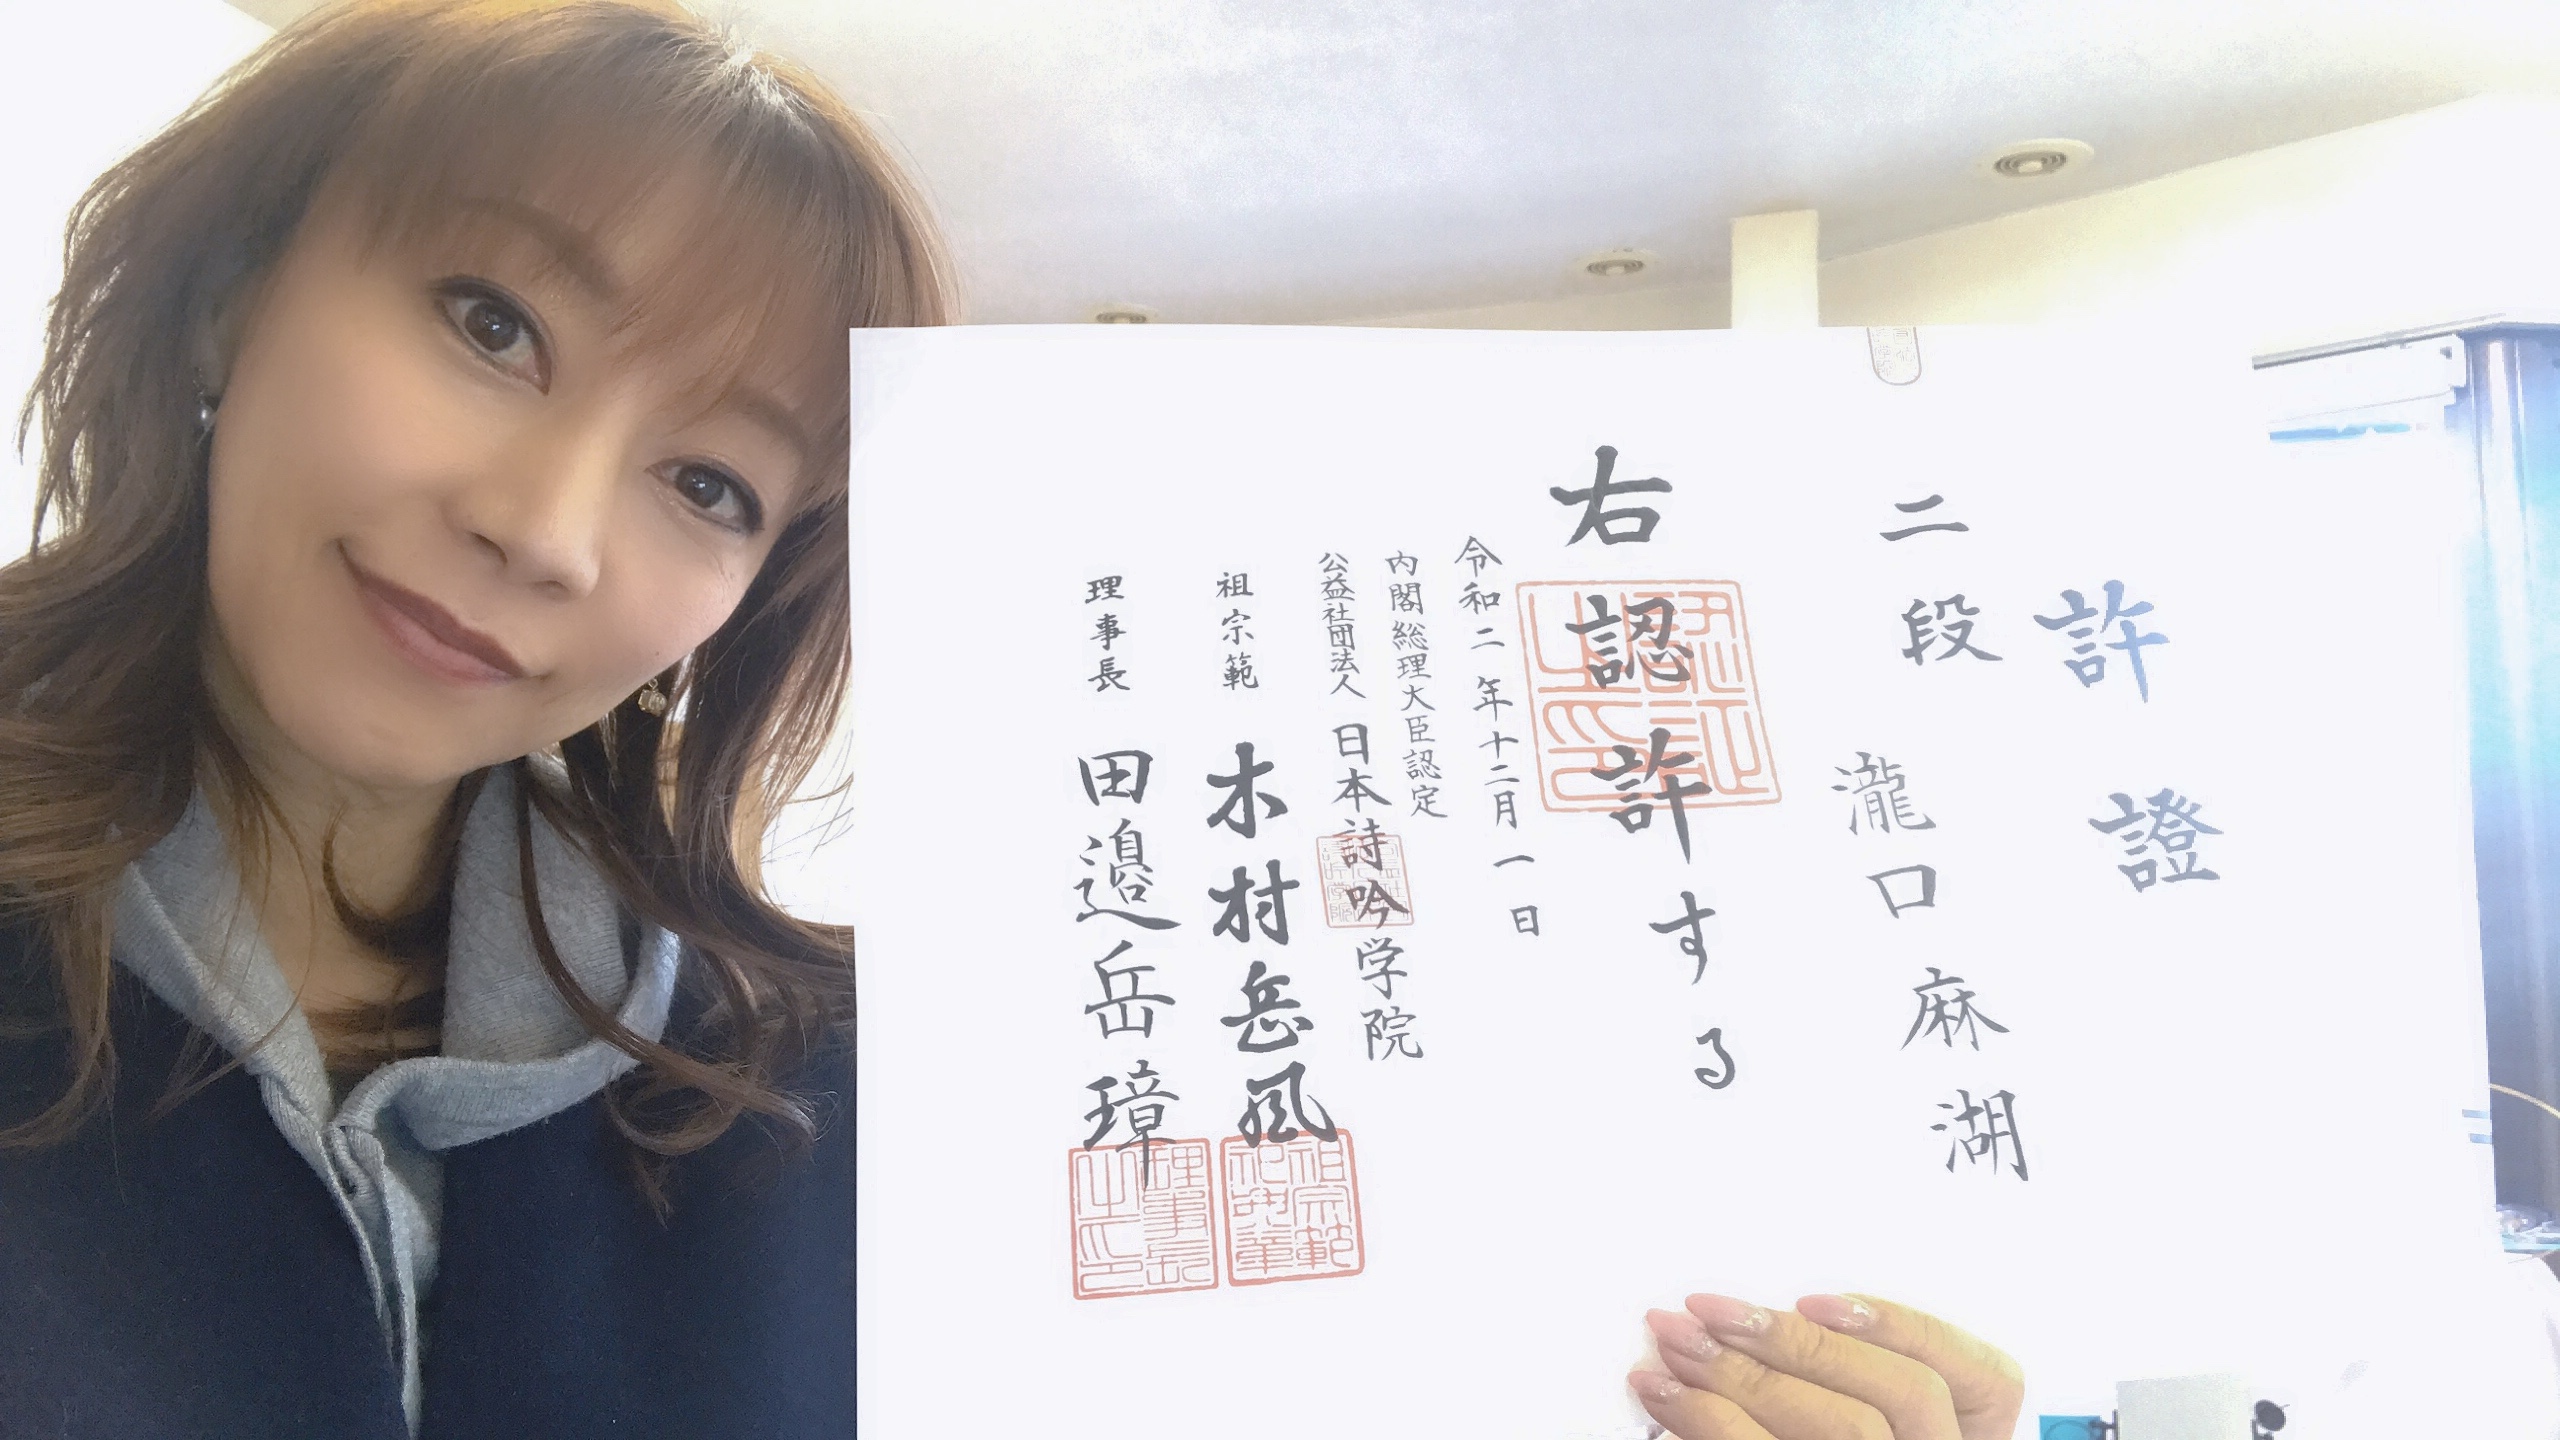 許證
二段 瀧口麻湖
右認許する
令和二年十二月一日
内閣総理大臣認定
公益社団法人 日本詩吟学院
祖宗範 木村岳風
理事長 田邉岳璋